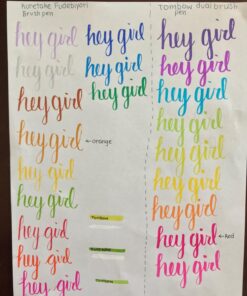 Kuretake Fudebiyori
Brush pen
hey girl
hey girl
hey girl
hey girl ← orange
hey girl
hey girl
hey girl
hey girl
hey girl
hey girl
hey girl
hey girl
Tombow
Kuretake
Tombow dual brush
pen
hey girl
hey girl
hey girl
hey girl
hey girl
hey girl
hey girl
hey girl ← Red
hey girl